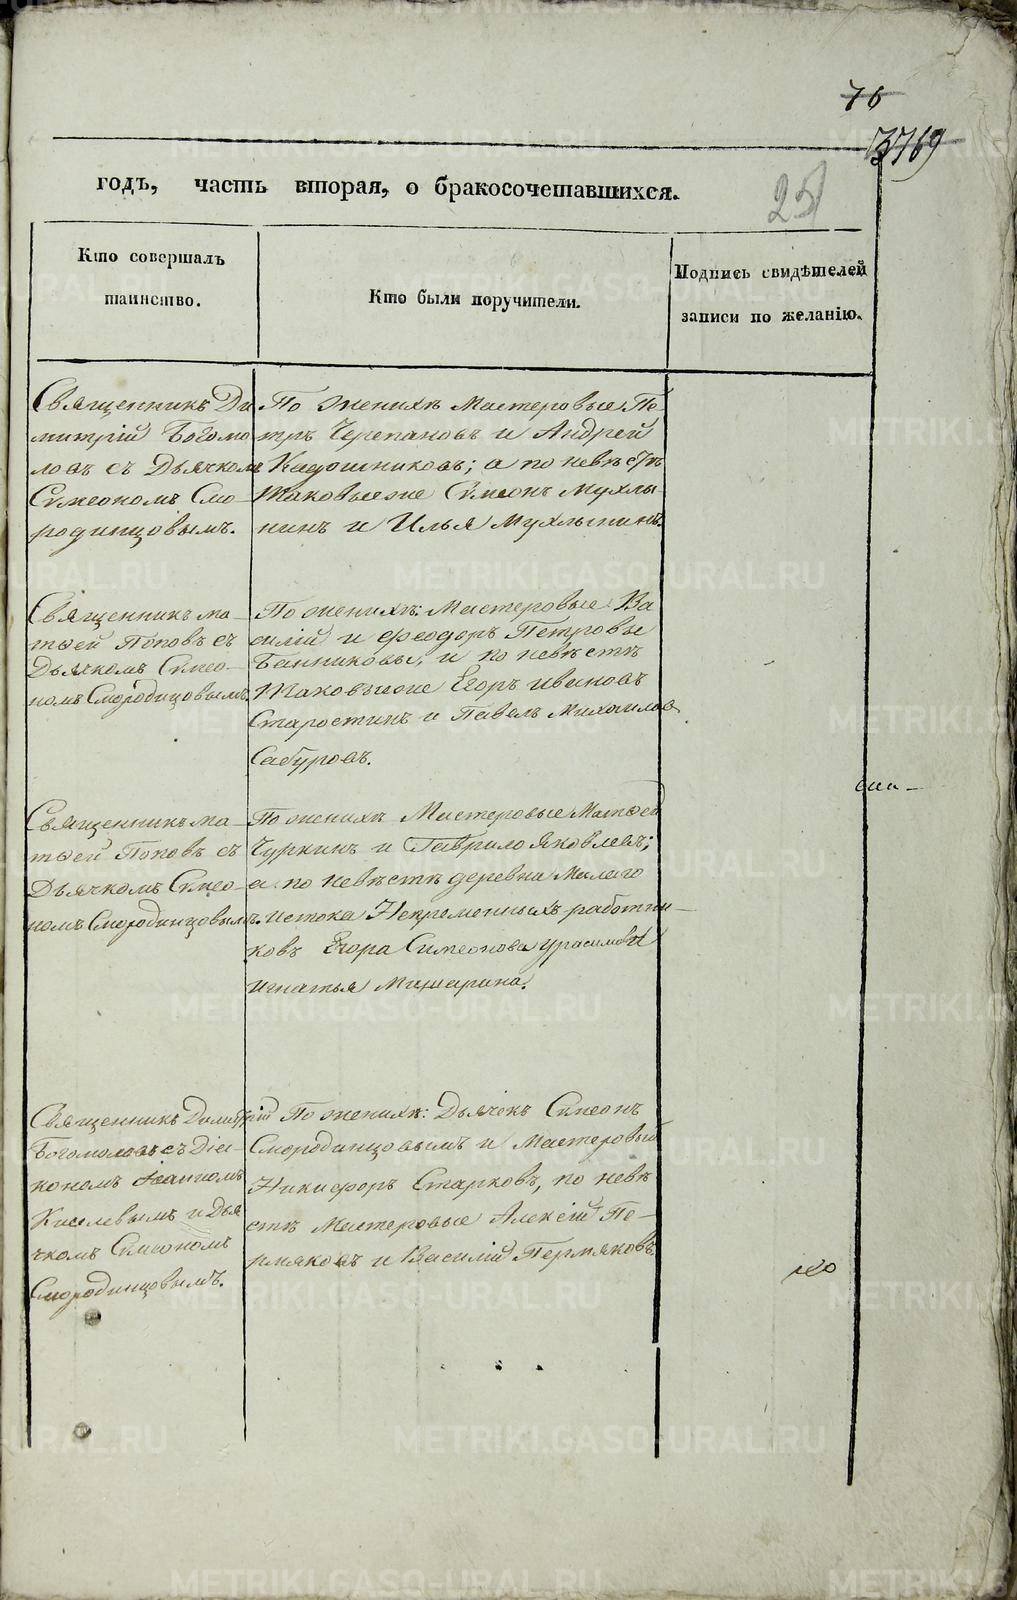 76
годъ, часть вторая, о бракосочетавшихся.
25
Кто совершалъ
таинство.
Кто были поручители.
Подпись свидѣтелей
записи по желанію.
Священникъ Ди
митрій Богомо
ловъ съ Дьячкомъ
Симеономъ Смо-
родинцовымъ.
По женихѣ Мастеровые Пе
тръ Черепановъ и Андрей
Кадошниковъ; а по невѣстѣ
таковыеже Симеонъ Мухлы-
нинъ и Илья Мухлынинъ.
Священникъ Ма-
тѳей Поповъ съ
Дьячкомъ Симео-
номъ Смородинцовымъ.
По женихѣ: Мастеровые Ва
силій и Феодоръ Петровы
Банниковы, и по невѣстѣ
таковыеже Егоръ Ивановъ
Старостинъ и Павелъ Михаиловъ
Сабуровъ.
Священникъ Ма-
тѳей Поповъ съ
Дьячкомъ Симео-
номъ Смородинцовымъ.
По женихѣ Мастеровые Матѳей
Чуркинъ и Гаврило Яковлевъ;
а по невѣстѣ деревни Малаго
Истока Непременныхъ работни-
ковъ Егора Симеонова и
Игнатья Мишарина.
Священникъ Димитрій
Богомоловъ съ Діа-
кономъ Іоанномъ
Киселевымъ и Дья
чкомъ Симеономъ
Смородинцовымъ.
По женихѣ: Дьячекъ Симеонъ
Смородинцовымъ и Мастеровый
Никифоръ Старковъ, по невѣ
стѣ Мастеровые Алексій Пе-
рмяковъ и Василій Пермяковъ